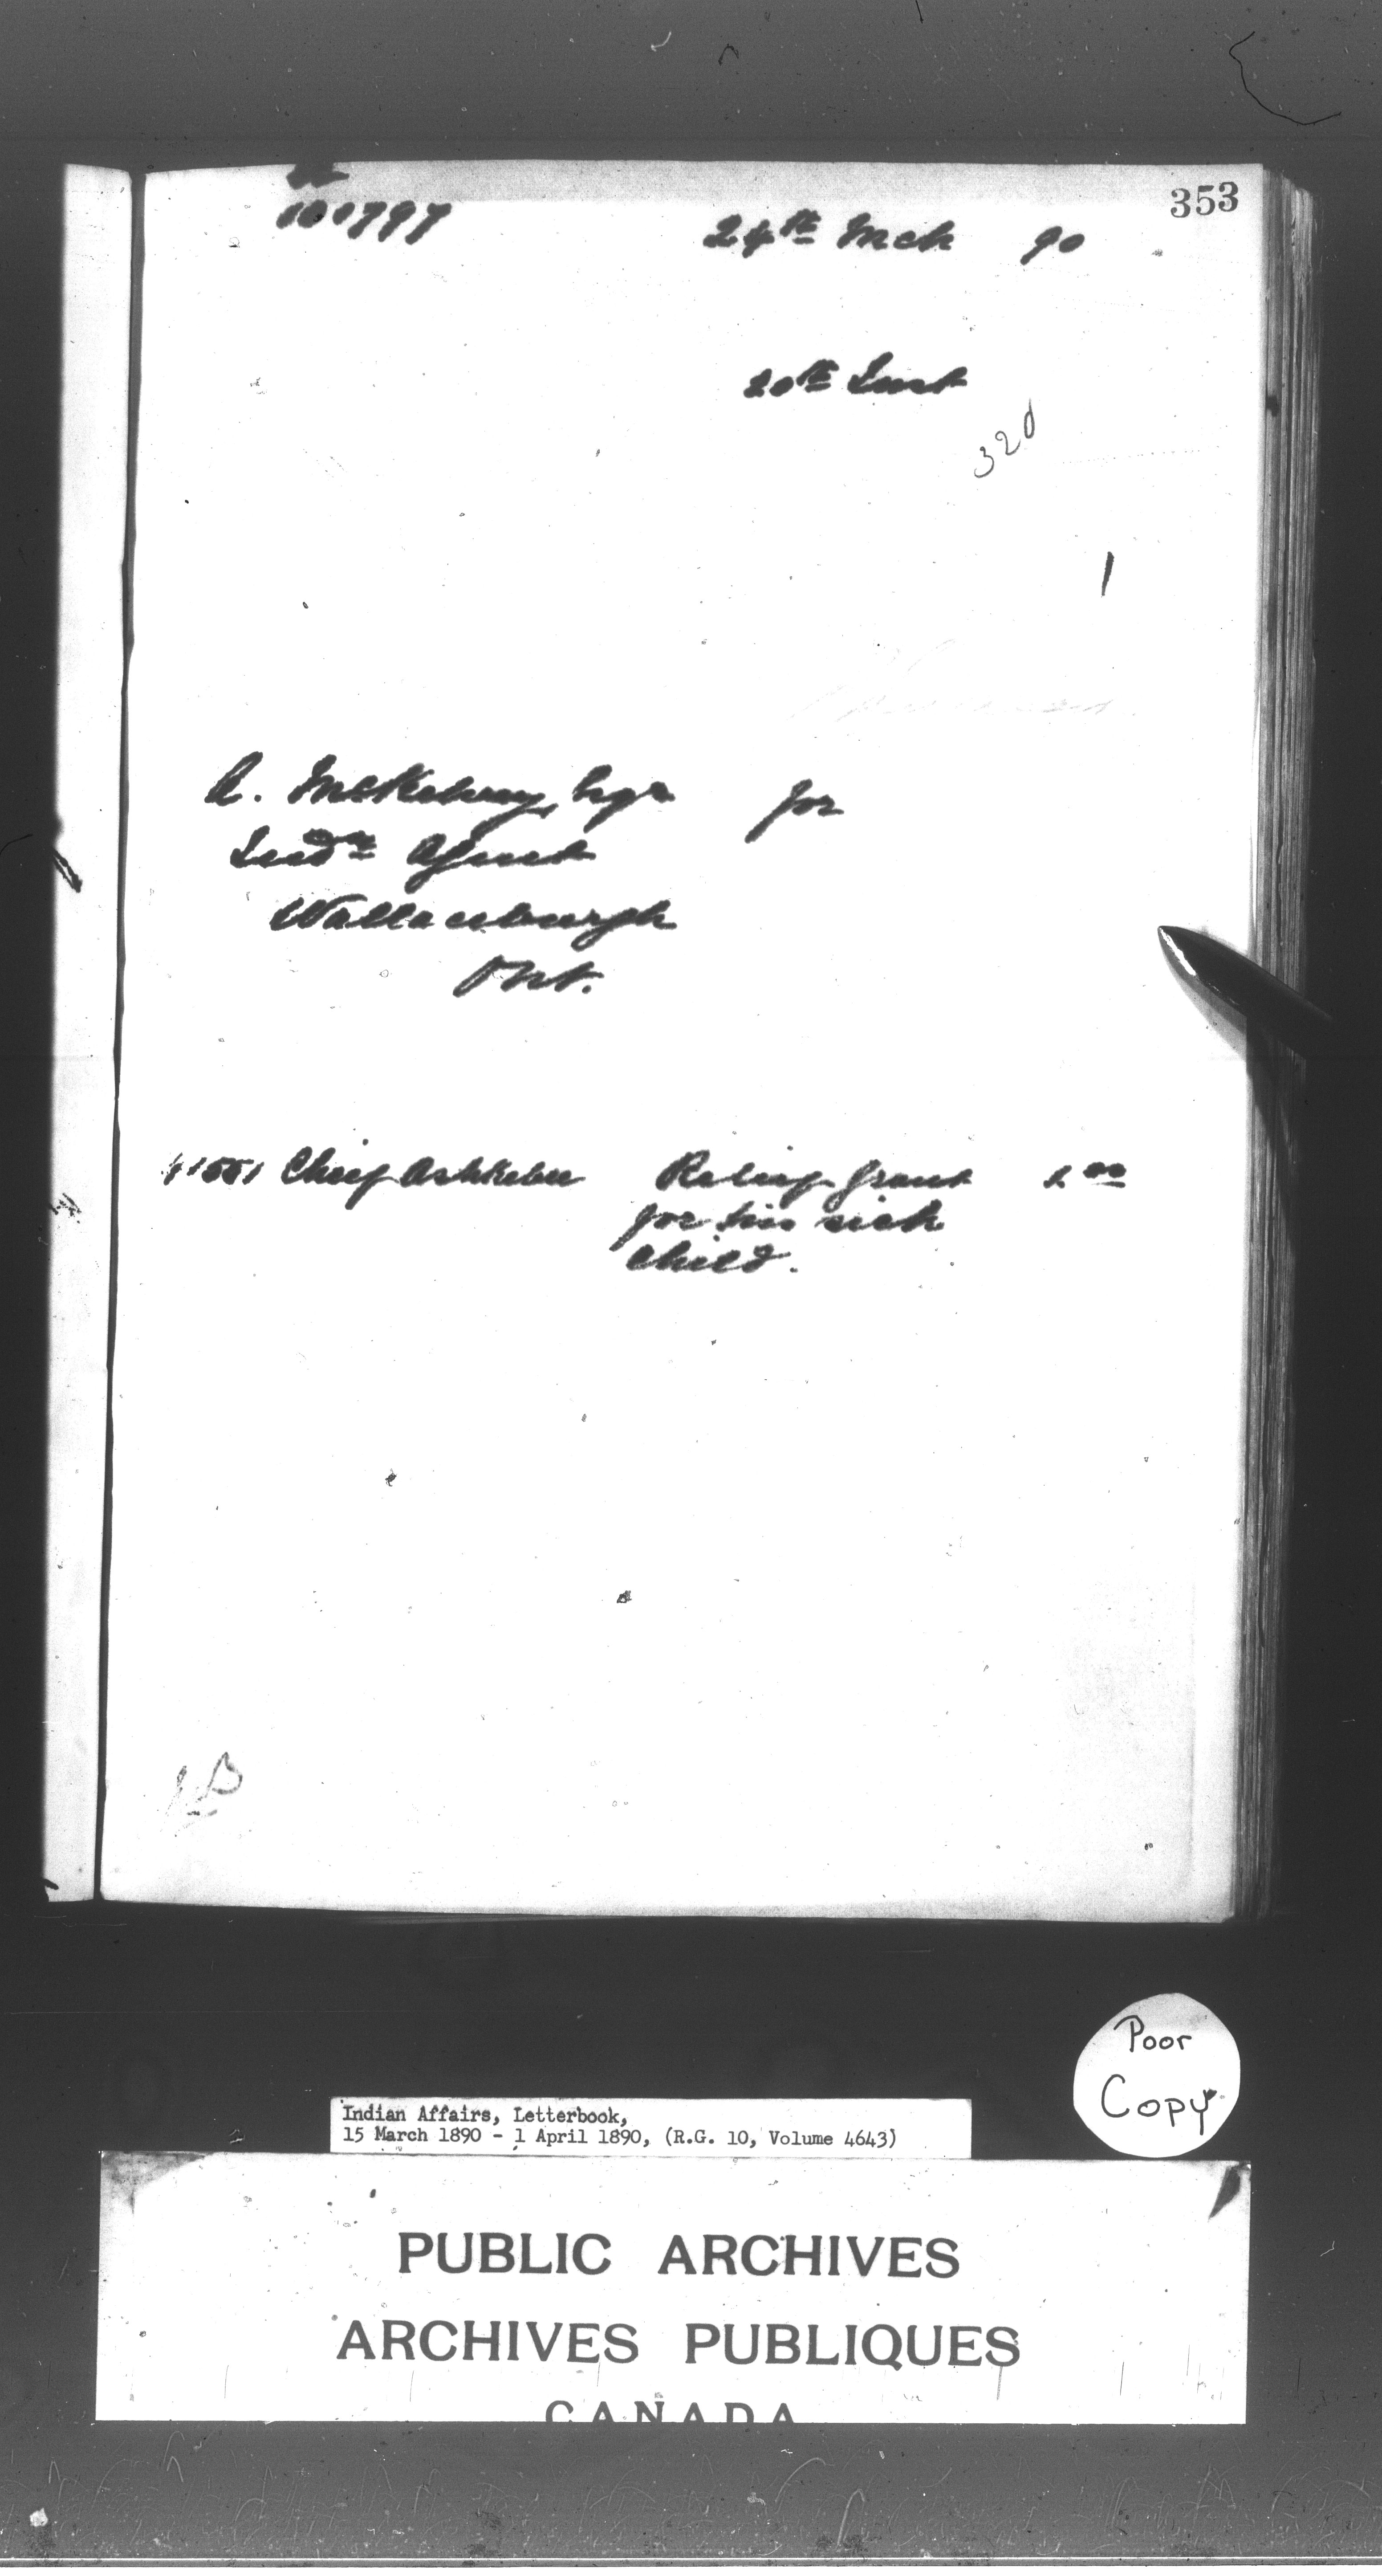 353
101797 24th Mch 90
20th Inst
320
A. McKelvey, Esqr for
Indn Agent
Wallaceburgh
Ont.
41551 Chief Ashkebee Relief grant
for his sick
child.
JB
Poor
Copy
Indian Affairs, Letterbook,
15 March 1890 - 1 April 1890, (R.G. 10, Volume 4643)
PUBLIC ARCHIVES
ARCHIVES PUBLIQUES
CANADA